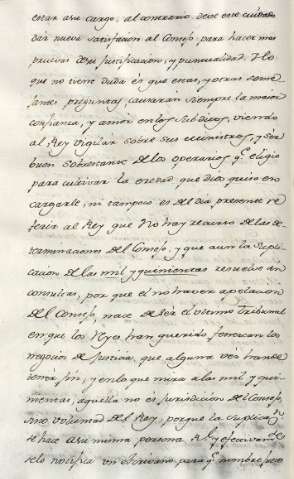 estar a su cargo, al contrario, debe este cuidado
dar nueva satisfacion al Consejo, para hacer mas
de su justificacion, y puntualidad. Y lo
que no tiene duda es que estas, y otras seme
jantes preguntas, causarán siempre la maior
confianza, y amor en los subditos, viendo
al Rey vigilar sobre sus Ministros, y ser
buen sobrestante de los operarios q.e eligió
para cultivar la heredad que Dios quiso en
cargarle, ni tampoco es del dia presente re
ferir al Rey que No hay recurso de las de
terminaciones del Consejo, y que aun la supli
cacion de las mil y quinientas resuelve en
consultas, por que el no haver apelacion
del Consejo, nace de ser el ultimo Tribunal
en que los Reyes han querido fenezcan los
negocios de Justicia, que alguna vez han de
tener fin, y en lo que mira a la mil y qui
nientas, aquella no es jurisdicion del Consejo,
sino voluntad del Rey, porque la suplica
se hace a su misma persona R.l y efectivam.te
se lo notifica un Escrivano para q.e nombre